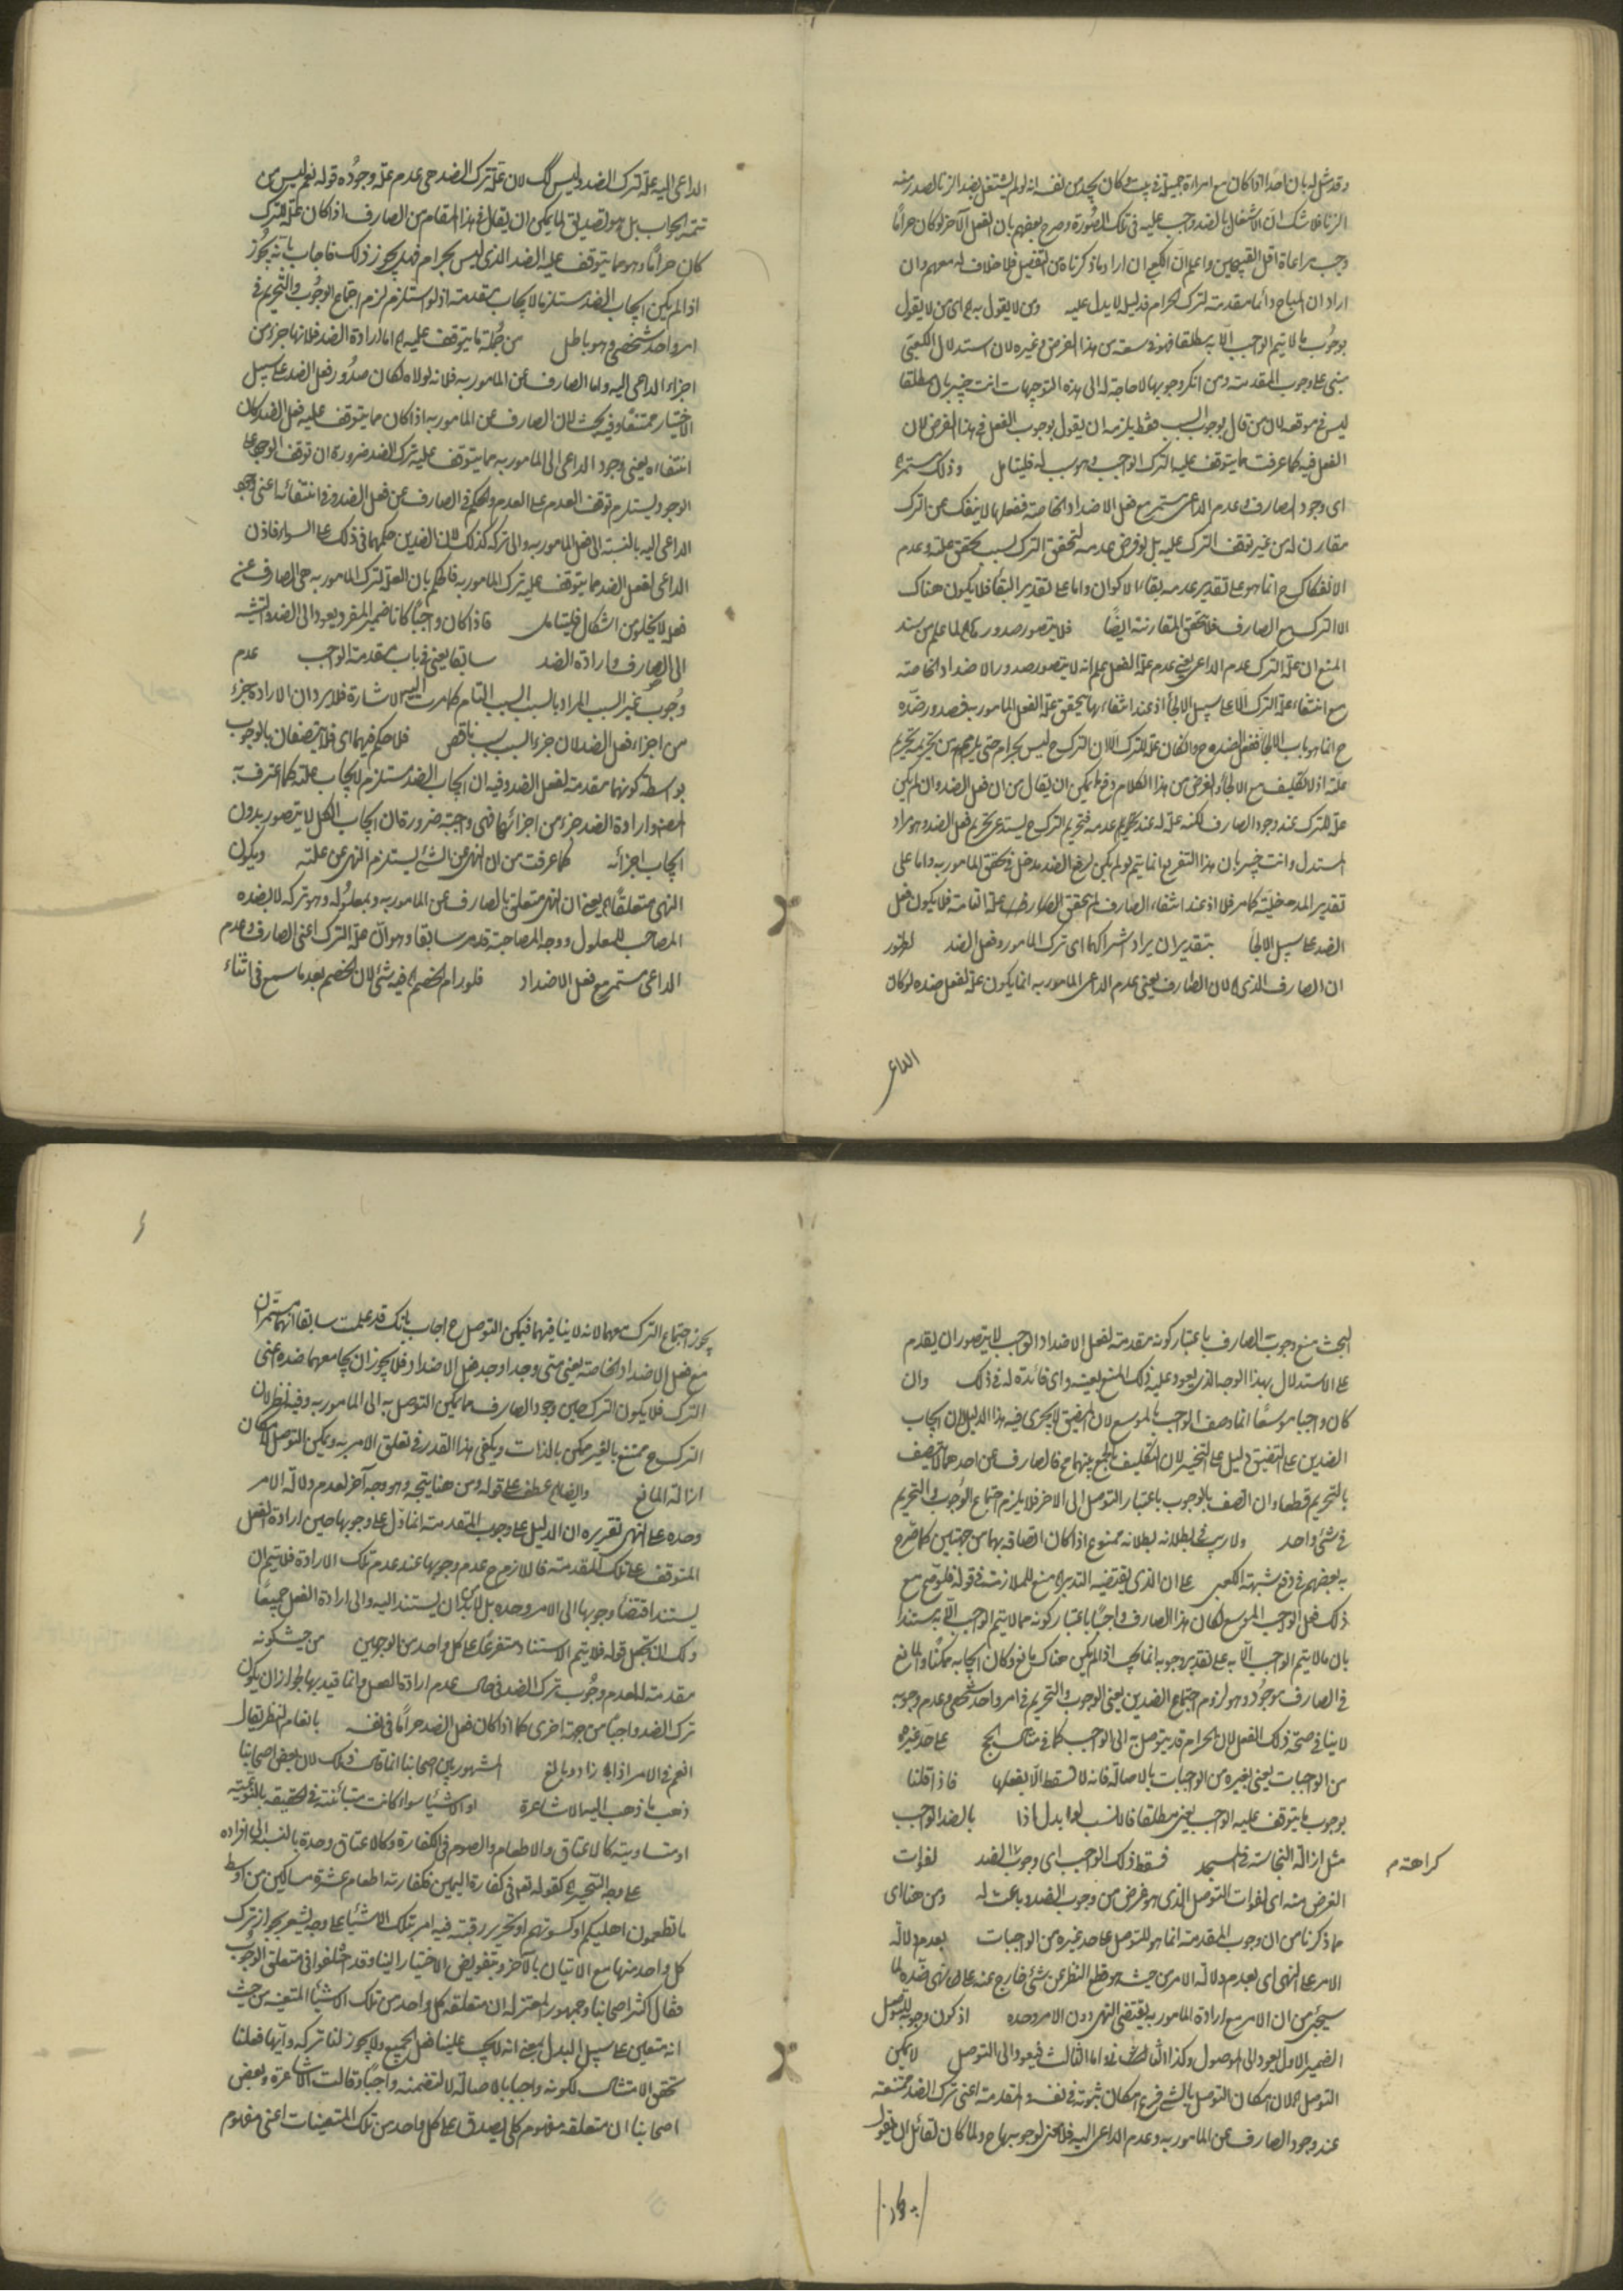 وقد مثل له بان احدا اذا كان مع امراءة جميلة في بيت وكان يجد من نفسه انه لو لم يشتغل بضد الزنا لصدر منه
الزنا فلا شك ان الاشتغال بالضد واجب عليه في تلك الصورة وصرح بعضهم بان الفعل الآخر لو كان حراما
وجب مراعاة اقل القبيحين واعلم ان الكعبي ان اراد ما ذكرناه من التفصيل فلا خلاف له معهم وان
اراد ان المباح دائما مقدمة لترك الحرام فدليله لا يدل عليه ومن لا يقول به اى من لا يقول
بوجوب ما لا يتم الواجب الا به مطلقا فهو في سعة من هذا الفرض وغيره لان استدلال الكعبي
مبنى على وجوب المقدمة ومن انكر وجوبها لا حاجة له الى هذه التوجيهات انت خبير بان مطلقا
ليس في موقعه لان من قال بوجوب السبب فقط يلزمه ان يقول بوجوب الفعل في هذا الفرض لان
الفعل فيه كما عرفت مما يتوقف عليه الترك الواجب وهو سبب له فليتامل وذلك مستمر
اى وجود الصارف وعدم الداعى مستمر مع فعل الاضداد الخاصة ففعلها لا ينفك عن الترك
مقارن له من غير توقف الترك عليه بل لو فرض عدمه لتحقق الترك بسبب تحقق علته وعدم
الانفكاك ح انما هو على تقدير عدم بقاء الاكوان واما على تقدير البقاء فلا يكون هناك
الا الترك مع الصارف فلا تحقق المقارنة ايضا فلا يتصور صدور لما علم من سند
المنع ان علة الترك عدم الداعى يعنى عدم علة الفعل علم انه لا يتصور صدور الاضداد الخاصة
مع انتفاء علة الترك الا على سبيل الالجاء اذ عند انتفائها يتحقق علة الفعل المامور به فصدور ضده
ح انما هو باب الالجاء ففعل الضد ح وان كان علة للترك الا ان الترك ح ليس بحرام حتى يلزم من تحريمه تحريم
علته اذ لا تكليف مع الالجاء والغرض من هذا الكلام دفع ما يمكن ان يقال من ان فعل الضد وان لم يكن
علة للترك عند وجود الصارف لكنه علة له عند عدمه فتحريم الترك ح يستدعى تحريم فعل الضد وهو مراد
المستدل وانت خبير بان هذا التفريع انما يتم لو لم يكن لرفع الضد مدخل في تحقق المامور به واما على
تقدير المدخلية كما مر فلا اذ عند انتفاء الصارف لم يتحقق علته التامة فلا يكون فعل
الضد على سبيل الالجاء بتقدير ان يراد اشتراكهما اى ترك المامور وفعل الضد لظهور
ان الصارف الذى لان الصارف يعنى عدم الداعى المامور به انما يكون علة لفعل ضده لو كان
الداعى
الداعى اليه علة لترك الضد وليس كك لان علة ترك الضد هى عدم علة وجوده قوله نعم ليس من
تتمة الجواب بل هو تصديق لما يمكن ان يقال في هذا المقام من ان الصارف اذا كان علة للترك
كان حراما وهو مما يتوقف عليه الضد الذى ليس بحرام فهل يجوز ذلك فاجاب بانه يجوز
اذا لم يكن ايجاب الضد مستلزما لايجاب مقدمته اذ لو استلزم لزم اجتماع الوجوب والتحريم في
امر واحد شخصى وهو باطل من جملة ما يتوقف عليه اما ارادة الضد فلانها جزء من
اجزاء الداعى اليه واما الصارف عن المامور به فلانه لولاه لكان صدور فعل الضد على سبيل
الاختيار ممتنعا وفيه بحث لان الصارف عن المامور به اذا كان مما يتوقف عليه فعل الضد كان
انتفاءه يعنى وجود الداعى الى المامور به مما يتوقف عليه ترك الضد ضرورة ان توقف الوجود على
الوجود يستلزم توقف العدم على العدم والحكم في الصارف عن فعل الضد وفى انتفائه اعنى وجود
الداعى اليه بالنسبة الى فعل المامور به والى تركه كذلك لان الضدين حكمهما في ذلك على السواء فاذن
الداعى لفعل الضد مما يتوقف عليه ترك المامور به فالحكم بان العلة لترك المامور به هى الصارف عن
فعله لا يخلو من اشكال فليتامل فاذا كان واجبا كانا ضمير المفرد يعود الى الضد والتثنية
الى الصارف وارادة الضد سابقا يعنى في باب مقدمة الواجب عدم
وجوب غير السبب المراد بالسبب السبب التام كما مرت اليه الاشارة فلا يرد ان الارادة جزء
من اجزاء فعل الضد لان جزء السبب سبب ناقص فلا حكم فيهما اى فلا يتصفان بالوجوب
بواسطة كونهما مقدمة لفعل الضد وفيه ان ايجاب الضد مستلزم لايجاب علته كما اعترف به
المصنف وارادة الضد جزء من اجزائها فهى واجبة ضرورة ان ايجاب الكل لا يتصور بدون
ايجاب اجزائه كما عرفت من ان النهى عن الشئ يستلزم النهى عن علته ويكون
النهى متعلقا يعنى ان النهى متعلق بالصارف عن المامور به وبمعلوله وهو تركه لا بضده
المصاحب للمعلول ووجه المصاحبة قد مر سابقا وهو ان علة الترك اعنى الصارف وعدم
الداعى مستمر مع فعل الاضداد فلو رام الخصم فيه شئ لان الخصم بعد ما سمع في اثناء
البحث منع وجوب الصارف باعتبار كونه مقدمة لفعل الاضداد الواجب لا يتصور ان يقدم
على الاستدلال بهذا الوجه الذى يعود عليه ذلك المنع بعينه واى فائدة له في ذلك وان
كان واجبا موسعا انما وصف الواجب بالموسع لان المضيق لا يجرى فيه هذا الدليل لان ايجاب
الضدين على التضيق دليل على التخيير لان التكليف بالجمع بينهما مح فالصارف عن احدهما لا يتصف
بالتحريم قطعا وان اتصف بالوجوب باعتبار التوصل الى الاخر فلا يلزم اجتماع الوجوب والتحريم
في شئ واحد ولا ريب في بطلانه بطلانه ممنوع اذا كان اتصافه بهما من جهتين كما صرح
به بعضهم في دفع شبهة الكعبى على ان الذى يقتضيه التدبر منع للملازمة في قوله فلو صح مع
ذلك فعل الواجب الموسع لكان هذا الصارف واجبا باعتبار كونه مما لا يتم الواجب الا به مستندا
بان ما لا يتم الواجب الا به على تقدير وجوبه انما يجب اذا لم يكن هناك مانع وكان ايجابه ممكنا والمانع
في الصارف موجود وهو لزوم اجتماع الضدين يعنى الوجوب والتحريم في امر واحد شخصى وعدم وجوبه
لا ينافى صحة ذلك الفعل لان الحرام قد يتوصل به الى الواجب كما في مثال الحج على حد غيره
من الواجبات يعنى لغيره من الواجبات بالاصالة فانه لا يسقط الا بفعلها فاذا قلنا
بوجوب ما يتوقف عليه الواجب يعنى مطلقا فالانسب لو بدل اذا بالضد الواجب
مثل ازالة النجاسة في المسجد فسقط ذلك الواجب اى وجوب الضد لفوات
كراهة م
الغرض منه اى لفوات التوصل الذى هو غرض من وجوب الضد وباعث له ومن هنا اى
مما ذكرنا من ان وجوب المقدمة انما هو للتوصل على حد غيره من الواجبات بعدم دلالة
الامر على النهى اى بعدم دلالة الامر من حيث هو وقطع النظر عن شئ خارج عنه على النهى ضده لما
سيجئ من ان الامر مع ارادة المامور به يقتضى النهى دون الامر وحده اذ كون وجوبه للتوصل
الضمير الاول يعود الى الموصول وكذا الثانى واما الثالث فيعود الى التوصل لا يمكن
التوصل لان امكان التوصل بالشئ فرع امكان ثبوته في نفسه والمقدمة اعنى ترك الضد ممتنعة
عند وجود الصارف عن المامور به وعدم الداعى اليه فلا معنى لوجوبها ح ولما كان لقائل ان يقول
يجوز
يجوز اجتماع الترك معهما لانه لا ينافيهما فيمكن التوصل ح اجاب بانك قد علمت سابقا انهما مستمران
مع فعل الاضداد الخاصة يعنى متى وجدا وجد فعل الاضداد فلا يجوز ان يجامعهما ضده اعنى
الترك فلا يكون الترك حين وجود الصارف مما يمكن التوصل به الى المامور به وفيه نظر لان
الترك ح ممتنع بالغير ممكن بالذات ويكفى هذا القدر في تعلق الامر به ويمكن التوصل لامكان
ازالة المانع وايضا عطف على قوله ومن هنا يتجه وهو وجه آخر لعدم دلالة الامر
وحده على النهى تقريره ان الدليل على وجوب المقدمة انما دل على وجوبها حين ارادة الفعل
المتوقف على تلك المقدمة فاللازم ح عدم وجوبها عند عدم تلك الارادة فلا يتم ان
يستند اقتضاء وجوبها الى الامر وحده بل لا بد ان يستند اليه والى ارادة الفعل جميعا
ولك ان تجعل قوله فلا يتم الاستناد متفرعا على كل واحد من الوجهين من حيث كونه
مقدمة له لعدم وجوب ترك الضد في حال عدم ارادة الفعل وانما قيد بها لجواز ان يكون
ترك الضد واجبا من جهة اخرى كما اذا كان فعل الضد حراما في نفسه بانعام النظر يقال
انعم في الامر اذا زاد وبالغ المشهور بين اصحابنا انما قال ذلك لان بعض اصحابنا
ذهب ما ذهب اليه الاشاعرة او الاشياء سواء كانت متبائنة في الحقيقة بالنوعية
او متساوية كالاعتاق والاطعام والصوم في الكفارة وكالاعتاق وحده بالنسبة الى افراده
على وجه التخيير كقوله تعم في كفارة اليمين فكفارته اطعام عشرة مساكين من اوسط
ما تطعمون اهليكم او كسوتهم او تحرير رقبة فيه امر بتلك الاشياء على وجه يشعر بجواز ترك
كل واحد منها مع الاتيان بالآخر وبتفويض الاختيار الينا وقد اختلفوا في متعلق الوجوب
فقال اكثر اصحابنا وجمهور المعتزلة ان متعلقه كل واحد من تلك الاشياء المتعينة من حيث
انه متعين على سبيل البدل يعنى انه لا يجب علينا فعل الجميع ولا يجوز لنا تركه وايها فعلنا
تحقق الامتثال لكونه واجبا بالاصالة لا لتضمنه واجبا وقالت الاشاعرة وبعض
اصحابنا ان متعلقه مفهوم كلى يصدق على كل واحد من تلك المتعينات اعنى مفهوم